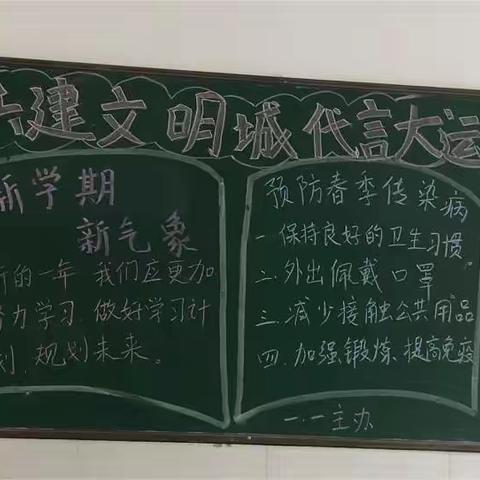 共建文明城代言大运
新学期
新气象
新的一年 我们应更加
努力学习,做好学习计
划,规划未来。
预防春季传染病
一.保持良好的卫生习惯
二.外出佩戴口罩
三.减少接触公共用品
四.加强锻炼、提高免疫
一.一主办